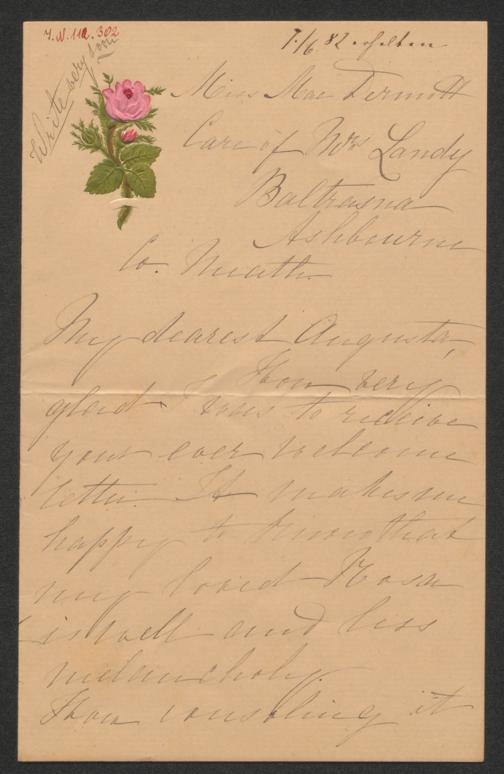 I.N. 112.302
7./6. 82 erhalten
Write very soon
Miss Mac Dermott
Care of Mrs Landy
Baltrasna
Ashbourne
Co. Meath.
My dearest Augusta,
How very
glad I was to recieve
your ever welcome
letter. It makes me
happy to know that
my loved Rosa
is well and less
melancholy.
How consoling it